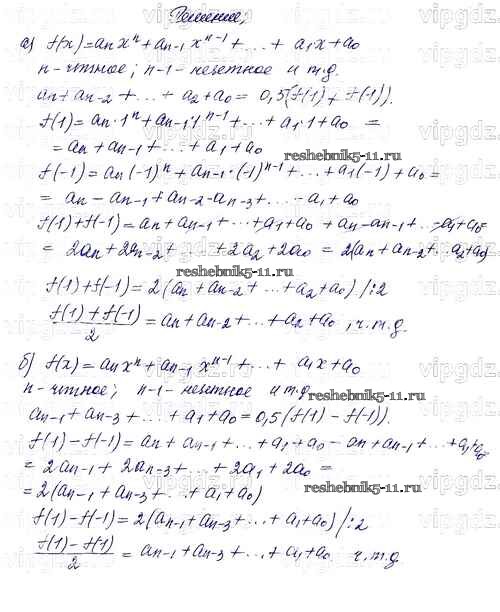 Решение:
а) f(x)=aₙxⁿ+aₙ₋₁xⁿ⁻¹+...+a₁x+a₀
n-чётное; n-1-нечетное и т.д.
aₙ+aₙ₋₂+...+a₂+a₀=0,5(f(1)+f(-1)).
f(1)=aₙ·1ⁿ+aₙ₋₁·1ⁿ⁻¹+...+a₁·1+a₀=
=aₙ+aₙ₋₁+...+a₁+a₀
reshebnik5-11.ru
f(-1)=aₙ(-1)ⁿ+aₙ₋₁·(-1)ⁿ⁻¹+...+a₁(-1)+a₀=
=aₙ-aₙ₋₁+aₙ₋₂-aₙ₋₃+...-a₁+a₀
f(1)+f(-1)=aₙ+aₙ₋₁+...+a₁+a₀+aₙ-aₙ₋₁+...-a₁+a₀=
=2aₙ+2aₙ₋₂+...+2a₂+2a₀=2(aₙ+aₙ₋₂+...a₂+a₀)
reshebnik5-11.ru
f(1)+f(-1)=2(aₙ+aₙ₋₂+...+a₂+a₀)/:2
(f(1)+f(-1))/2=aₙ+aₙ₋₂+...+a₂+a₀, ч.т.д.
б) f(x)=aₙxⁿ+aₙ₋₁xⁿ⁻¹+...+a₁x+a₀
n-чётное; n-1-нечетное и т.д
reshebnik5-11.ru
aₙ₋₁+aₙ₋₃+...+a₁+a₀=0,5(f(1)-f(-1)).
f(1)-f(-1)=aₙ+aₙ₋₁+...+a₁+a₀-aₙ+aₙ₋₁+...+a₁-a₀
=2aₙ₋₁+2aₙ₋₃+...+2a₁+2a₀=
=2(aₙ₋₁+aₙ₋₃+...+a₁+a₀)
reshebnik5-11.ru
f(1)-f(-1)=2(aₙ₋₁+aₙ₋₃+...+a₁+a₀)/:2
(f(1)-f(1))/2=aₙ₋₁+aₙ₋₃+...+a₁+a₀ ч.т.д
reshebnik5-11.ru